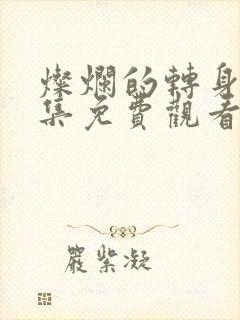 燦爛的轉身
集免費觀看
嚴紫凝